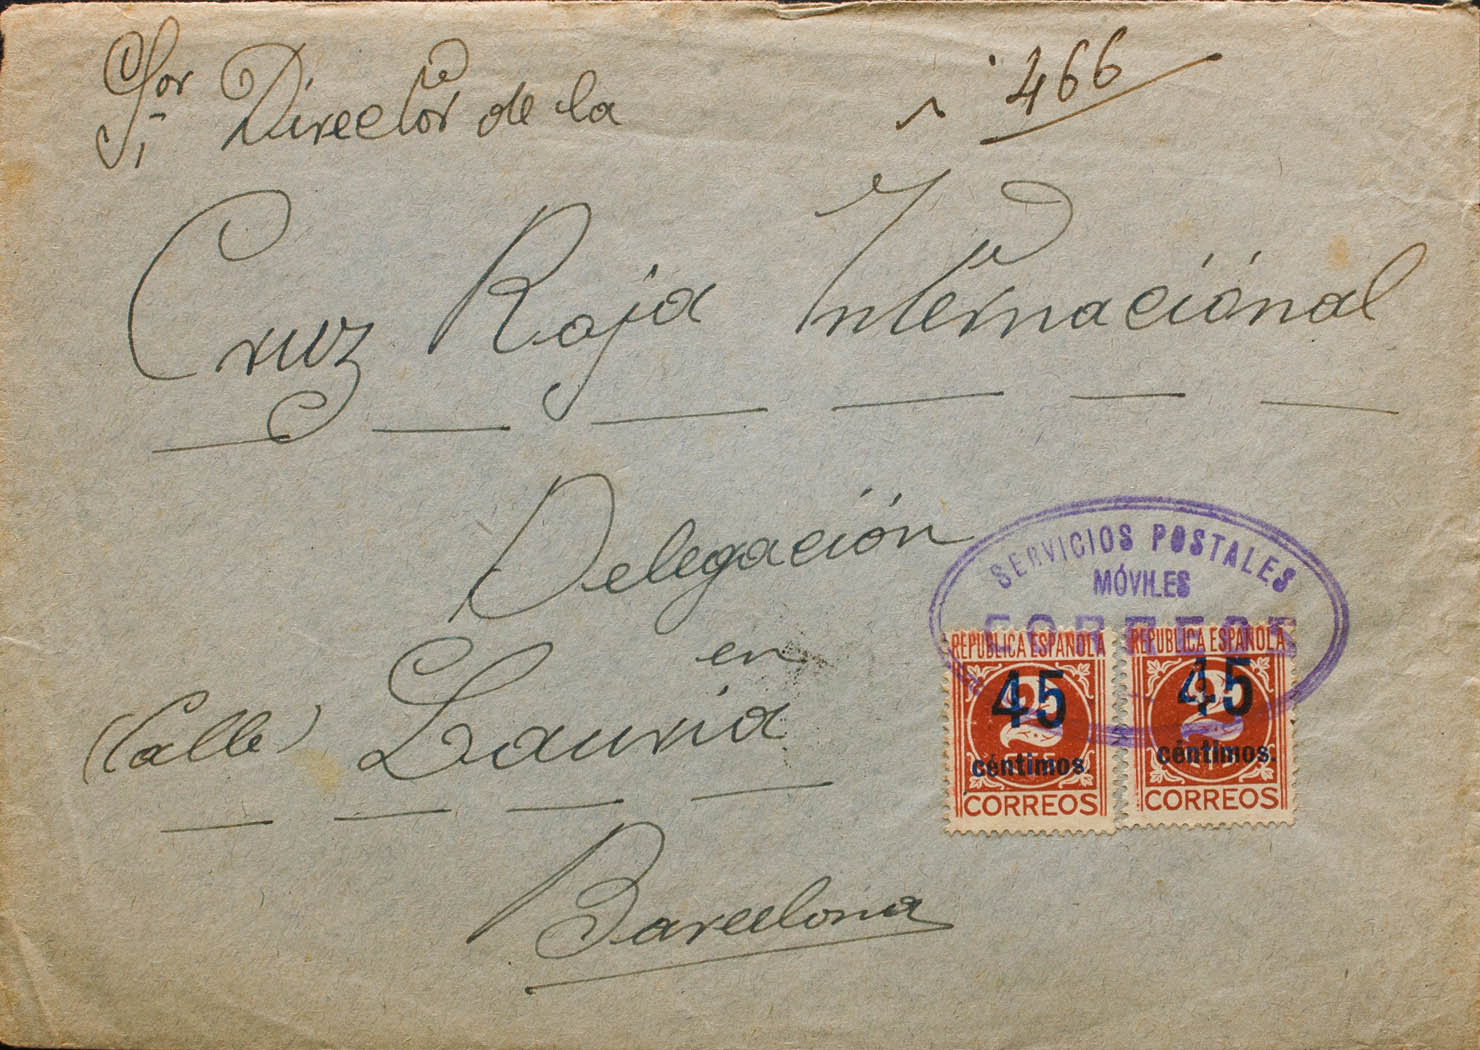 Sor Director de la
n 466
Cruz Roja Internacional
Delegación
en
(Calle) Lauria
Barcelona
SERVICIOS POSTALES
MÓVILES
CORREOS
REPUBLICA ESPAÑOLA
45
2
céntimos
CORREOS
REPUBLICA ESPAÑOLA
45
2
céntimos.
CORREOS